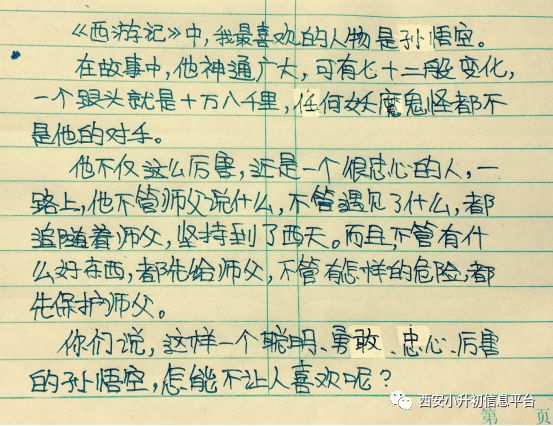 《西游记》中，我最喜欢的人物是孙悟空。
在故事中，他神通广大，可有七十二段变化，
一个跟头就是十万八千里，任何妖魔鬼怪都不
是他的对手。
他不仅这么厉害，还是一个很忠心的人，一
路上，他不管师父说什么，不管遇见了什么，都
追随着师父，坚持到了西天。而且，不管有什
么好东西，都先给师父，不管有怎样的危险，都
先保护师父。
你们说，这样一个聪明、勇敢、忠心、厉害
的孙悟空，怎能不让人喜欢呢？
西安小升初信息平台
第 页